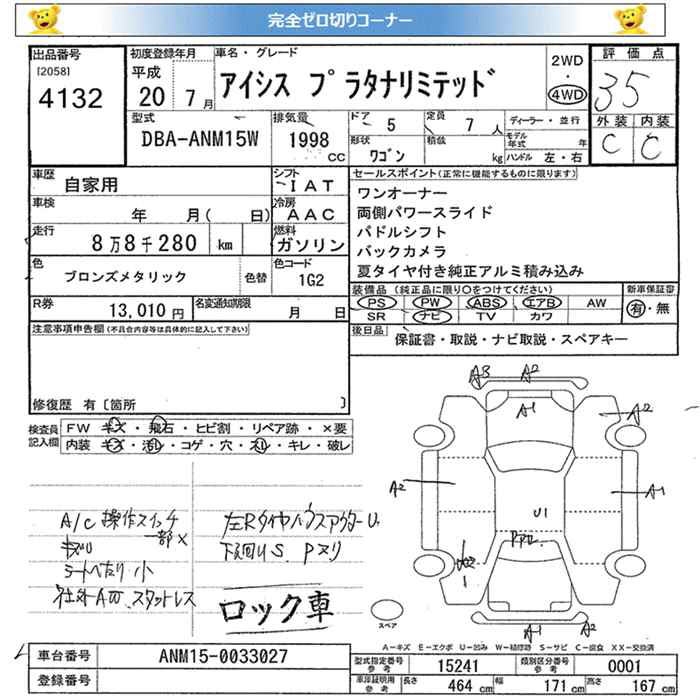 完全ゼロ切りコーナー
出品番号
[2058]
4132
初度登録年月
平成
20 7月
車名・グレード
アイシス プラタナリミテッド
2WD
・
4WD
評価点
35
外装 内装
C C
型式
DBA-ANM15W
排気量
1998
CC
ドア
5
定員
7人
形状
ワゴン
積載
kg
ディーラー・並行
モデル年式 年
ハンドル 左・右
車歴
自家用
シフト
IAT
車検
年 月( 日)
冷房
AAC
走行
8万8千280 km
燃料
ガソリン
色
ブロンズメタリック
色替
色コード
1G2
R券
13,010円
名変通知期限
月 日
セールスポイント(正常に機能するものに限ります)
ワンオーナー
両側パワースライド
パドルシフト
バックカメラ
夏タイヤ付き純正アルミ積み込み
装備品(純正品に限り○をつけてください)
PS PW ABS エアB AW
SR ナビ TV カワ
新車保証書
有・無
後日品
保証書・取説・ナビ取説・スペアキー
注意事項申告欄(不具合内容等は具体的に記入して下さい)
修復歴 有[箇所 ]
検査員記入欄
FW キズ・飛石・ヒビ割・リペア跡・×要
内装 キズ・汚レ・コゲ・穴・スレ・キレ・破レ
A/C 操作スイッチ
一部×
キズU
シートへたり 小
社外AW スタットレス
左Rタイヤハウスアウター U.
下廻りU S. Pヌリ
ロック車
A3 A2
A1
A2
A2
A1
U1
A1
A2
スペア
A-キズ E-エクボ U-凹み W-補修跡 S-サビ C-腐食 XX-交換済
車台番号
ANM15-0033027
登録番号
型式指定番号
参考
15241
類別区分番号
参考
0001
車庫証明用
参考
長さ 464 cm 幅 171 cm 高さ 167 cm